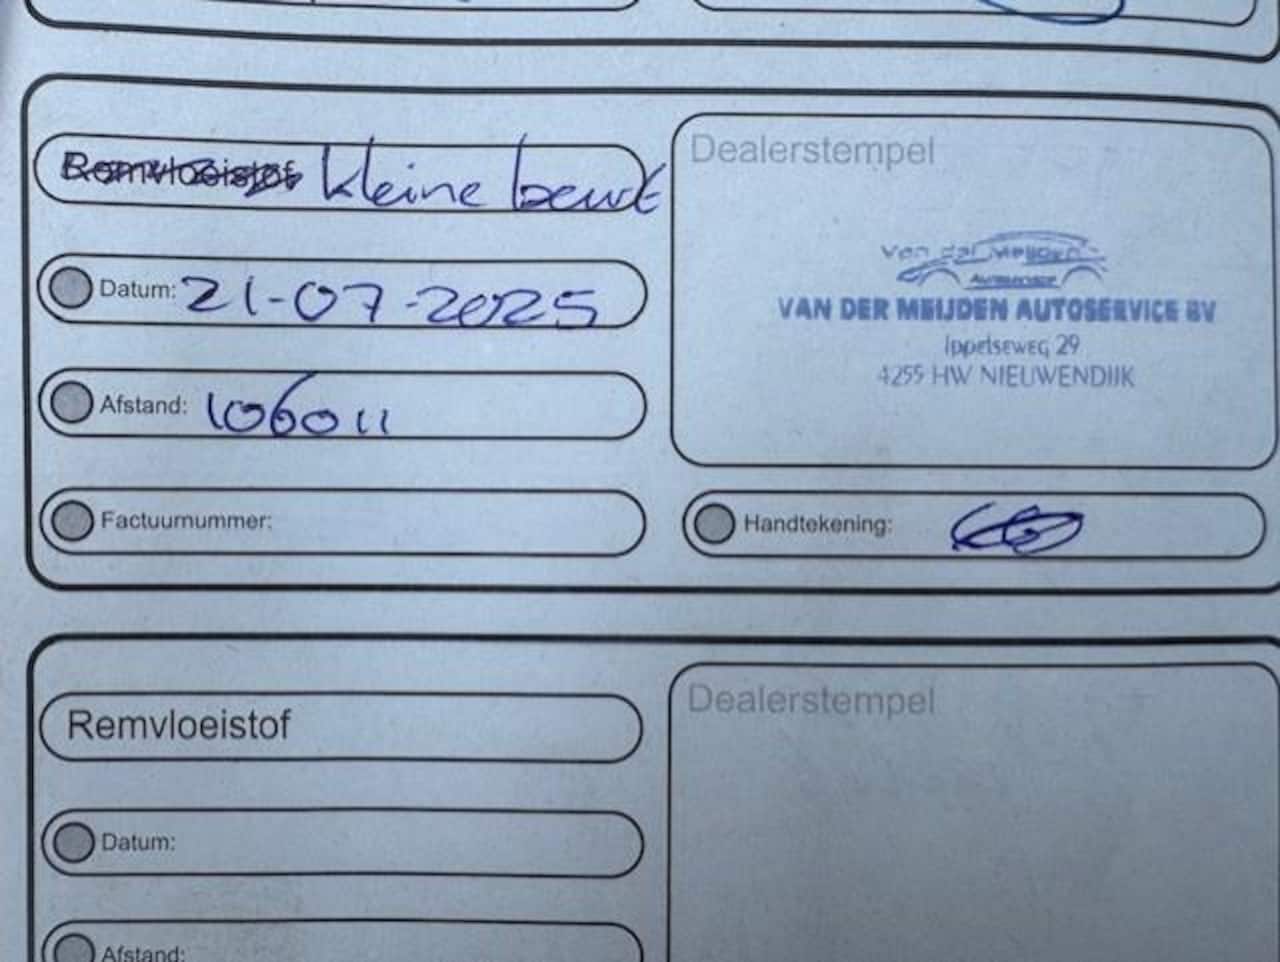 Remvloeistof kleine beurt
Dealerstempel
Datum: 21-07-2025
Van der Meijden
Autoservice
VAN DER MEIJDEN AUTOSERVICE BV
Ippelseweg 29
4255 HW NIEUWENDIJK
Afstand: 106011
Factuurnummer:
Handtekening:
Remvloeistof
Dealerstempel
Datum:
Afstand: